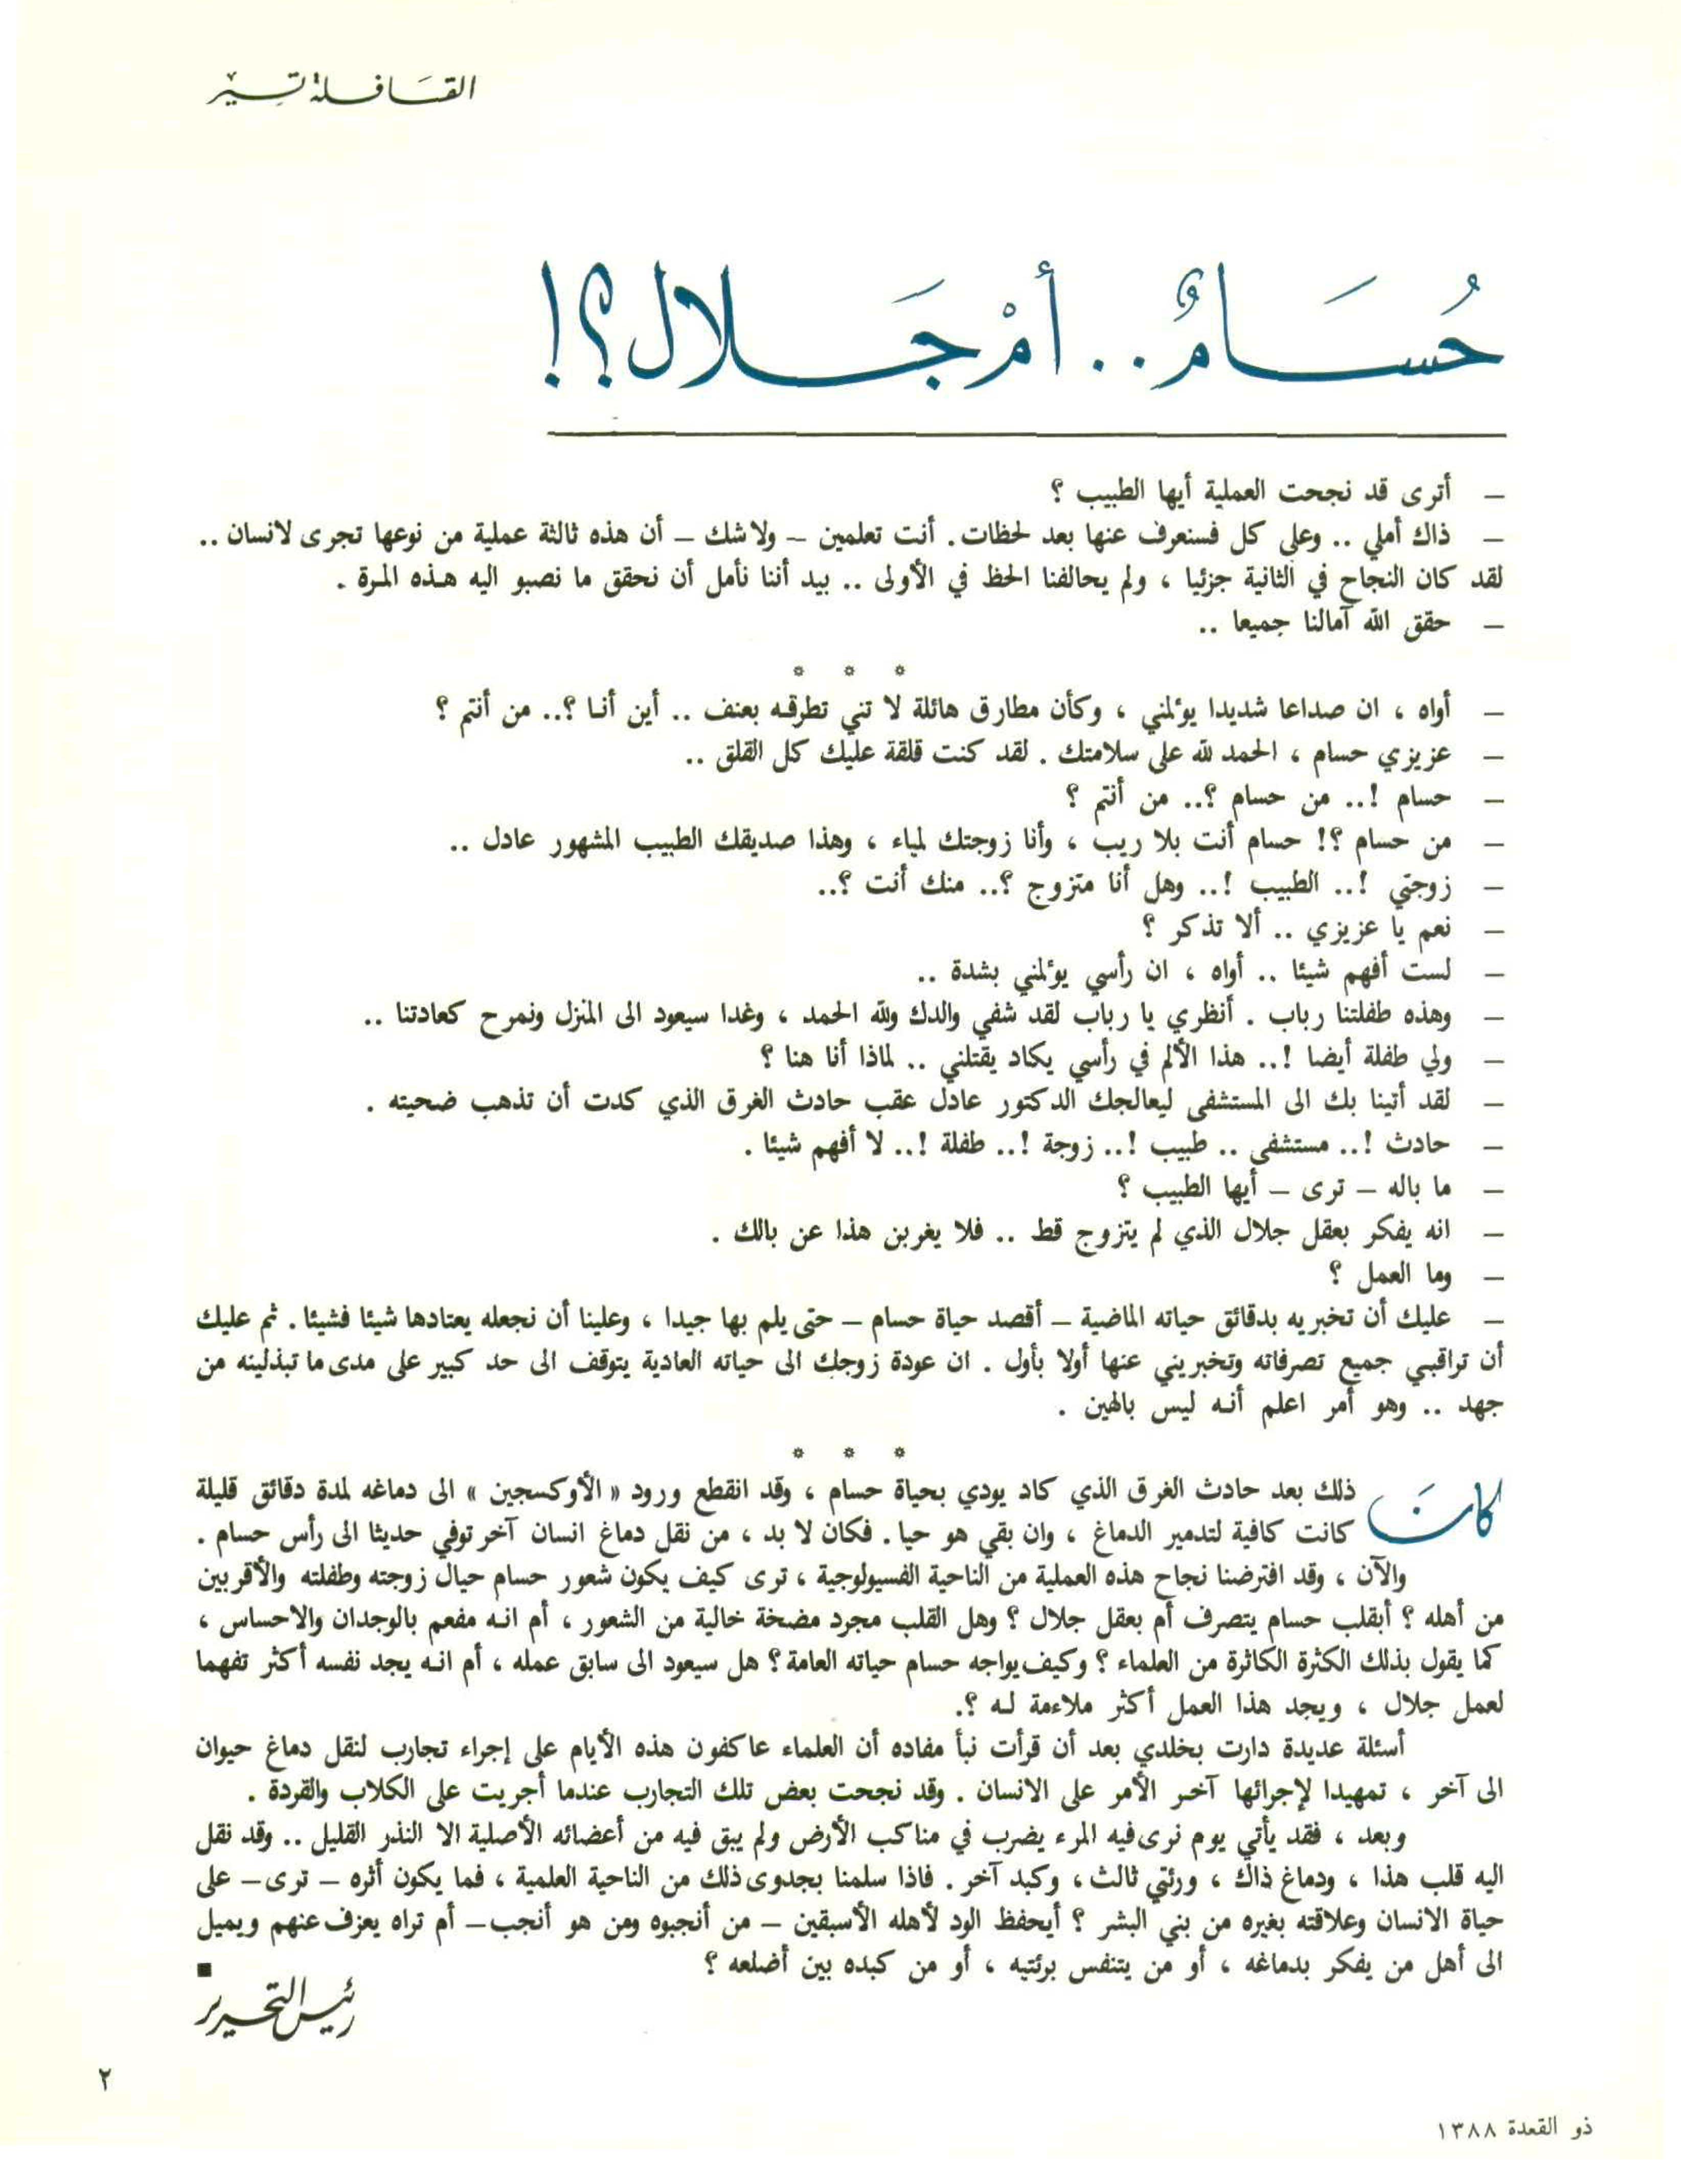 القافلة تسير
حُسَامٌ.. أمْ جَلال؟!
– أترى قد نجحت العملية أيها الطبيب ؟
– ذاك أملي .. وعلى كل فسنعرف عنها بعد لحظات. أنت تعلمين – ولا شك – أن هذه ثالثة عملية من نوعها تجرى لانسان ..
لقد كان النجاح في الثانية جزئيا ، ولم يحالفنا الحظ في الأولى .. بيد أننا نأمل أن نحقق ما نصبو اليه هذه المرة .
– حقق الله آمالنا جميعا ..
* * *
– أواه ، ان صداعا شديدا يؤلمني ، وكأن مطارق هائلة لا تني تطرقه بعنف .. أين أنا ؟.. من أنتم ؟
– عزيزي حسام ، الحمد لله على سلامتك . لقد كنت قلقة عليك كل القلق ..
– حسام !.. من حسام ؟.. من أنتم ؟
– من حسام ؟! حسام أنت بلا ريب ، وأنا زوجتك لمياء ، وهذا صديقك الطبيب المشهور عادل ..
– زوجتي !.. الطبيب !.. وهل أنا متزوج ؟.. منك أنت ؟..
– نعم يا عزيزي .. ألا تذكر ؟
– لست أفهم شيئا .. أواه ، ان رأسي يؤلمني بشدة ..
– وهذه طفلتنا رباب . أنظري يا رباب لقد شفي والدك ولله الحمد ، وغدا سيعود الى المنزل ونمرح كعادتنا ..
– ولي طفلة أيضا !.. هذا الألم في رأسي يكاد يقتلني .. لماذا أنا هنا ؟
– لقد أتينا بك الى المستشفى ليعالجك الدكتور عادل عقب حادث الغرق الذي كدت أن تذهب ضحيته .
– حادث !.. مستشفى .. طبيب !.. زوجة !.. طفلة !.. لا أفهم شيئا .
– ما باله – ترى – أيها الطبيب ؟
– انه يفكر بعقل جلال الذي لم يتزوج قط .. فلا يغربن هذا عن بالك .
– وما العمل ؟
– عليك أن تخبريه بدقائق حياته الماضية – أقصد حياة حسام – حتى يلم بها جيدا ، وعلينا أن نجعله يعتادها شيئا فشيئا . ثم عليك
أن تراقبي جميع تصرفاته وتخبريني عنها أولا بأول . ان عودة زوجك الى حياته العادية يتوقف الى حد كبير على مدى ما تبذلينه من
جهد .. وهو أمر اعلم أنه ليس بالهين .
* * *
كانَ ذلك بعد حادث الغرق الذي كاد يودي بحياة حسام ، وقد انقطع ورود « الأوكسجين » الى دماغه لمدة دقائق قليلة
كانت كافية لتدمير الدماغ ، وان بقي هو حيا . فكان لا بد ، من نقل دماغ انسان آخر توفي حديثا الى رأس حسام .
والآن ، وقد افترضنا نجاح هذه العملية من الناحية الفسيولوجية ، ترى كيف يكون شعور حسام حيال زوجته وطفلته والأقربين
من أهله ؟ أبقلب حسام يتصرف أم بعقل جلال ؟ وهل القلب مجرد مضخة خالية من الشعور ، أم انه مفعم بالوجدان والاحساس ،
كما يقول بذلك الكثرة الكاثرة من العلماء ؟ وكيف يواجه حسام حياته العامة ؟ هل سيعود الى سابق عمله ، أم انه يجد نفسه أكثر تفهما
لعمل جلال ، ويجد هذا العمل أكثر ملاءمة له ؟.
أسئلة عديدة دارت بخلدي بعد أن قرأت نبأ مفاده أن العلماء عاكفون هذه الأيام على إجراء تجارب لنقل دماغ حيوان
الى آخر ، تمهيدا لإجرائها آخر الأمر على الانسان . وقد نجحت بعض تلك التجارب عندما أجريت على الكلاب والقردة .
وبعد ، فقد يأتي يوم نرى فيه المرء يضرب في مناكب الأرض ولم يبق فيه من أعضائه الأصلية الا النذر القليل .. وقد نقل
اليه قلب هذا ، ودماغ ذاك ، ورئتي ثالث ، وكبد آخر . فاذا سلمنا بجدوى ذلك من الناحية العلمية ، فما يكون أثره – ترى – على
حياة الانسان وعلاقته بغيره من بني البشر ؟ أيحفظ الود لأهله الأسبقين – من أنجبوه ومن هو أنجب – أم تراه يعزف عنهم ويميل
الى أهل من يفكر بدماغه ، أو من يتنفس برئتيه ، أو من كبده بين أضلعه ؟
رئيس التحرير
٢
ذو القعدة ١٣٨٨